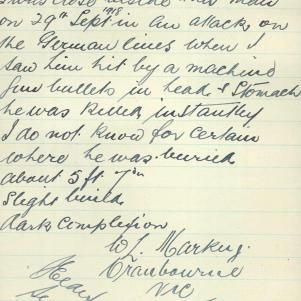 I was close beside this man
1918.
on 29th Sept in an attack on
the German lines when I
saw him hit by a machine
gun bullets in head & Stomach
he was Killed instantly
I do not know for certain
where he was buried
about 5 ft 7in
Slight build
dark Complexion
Cranbourne
VIC